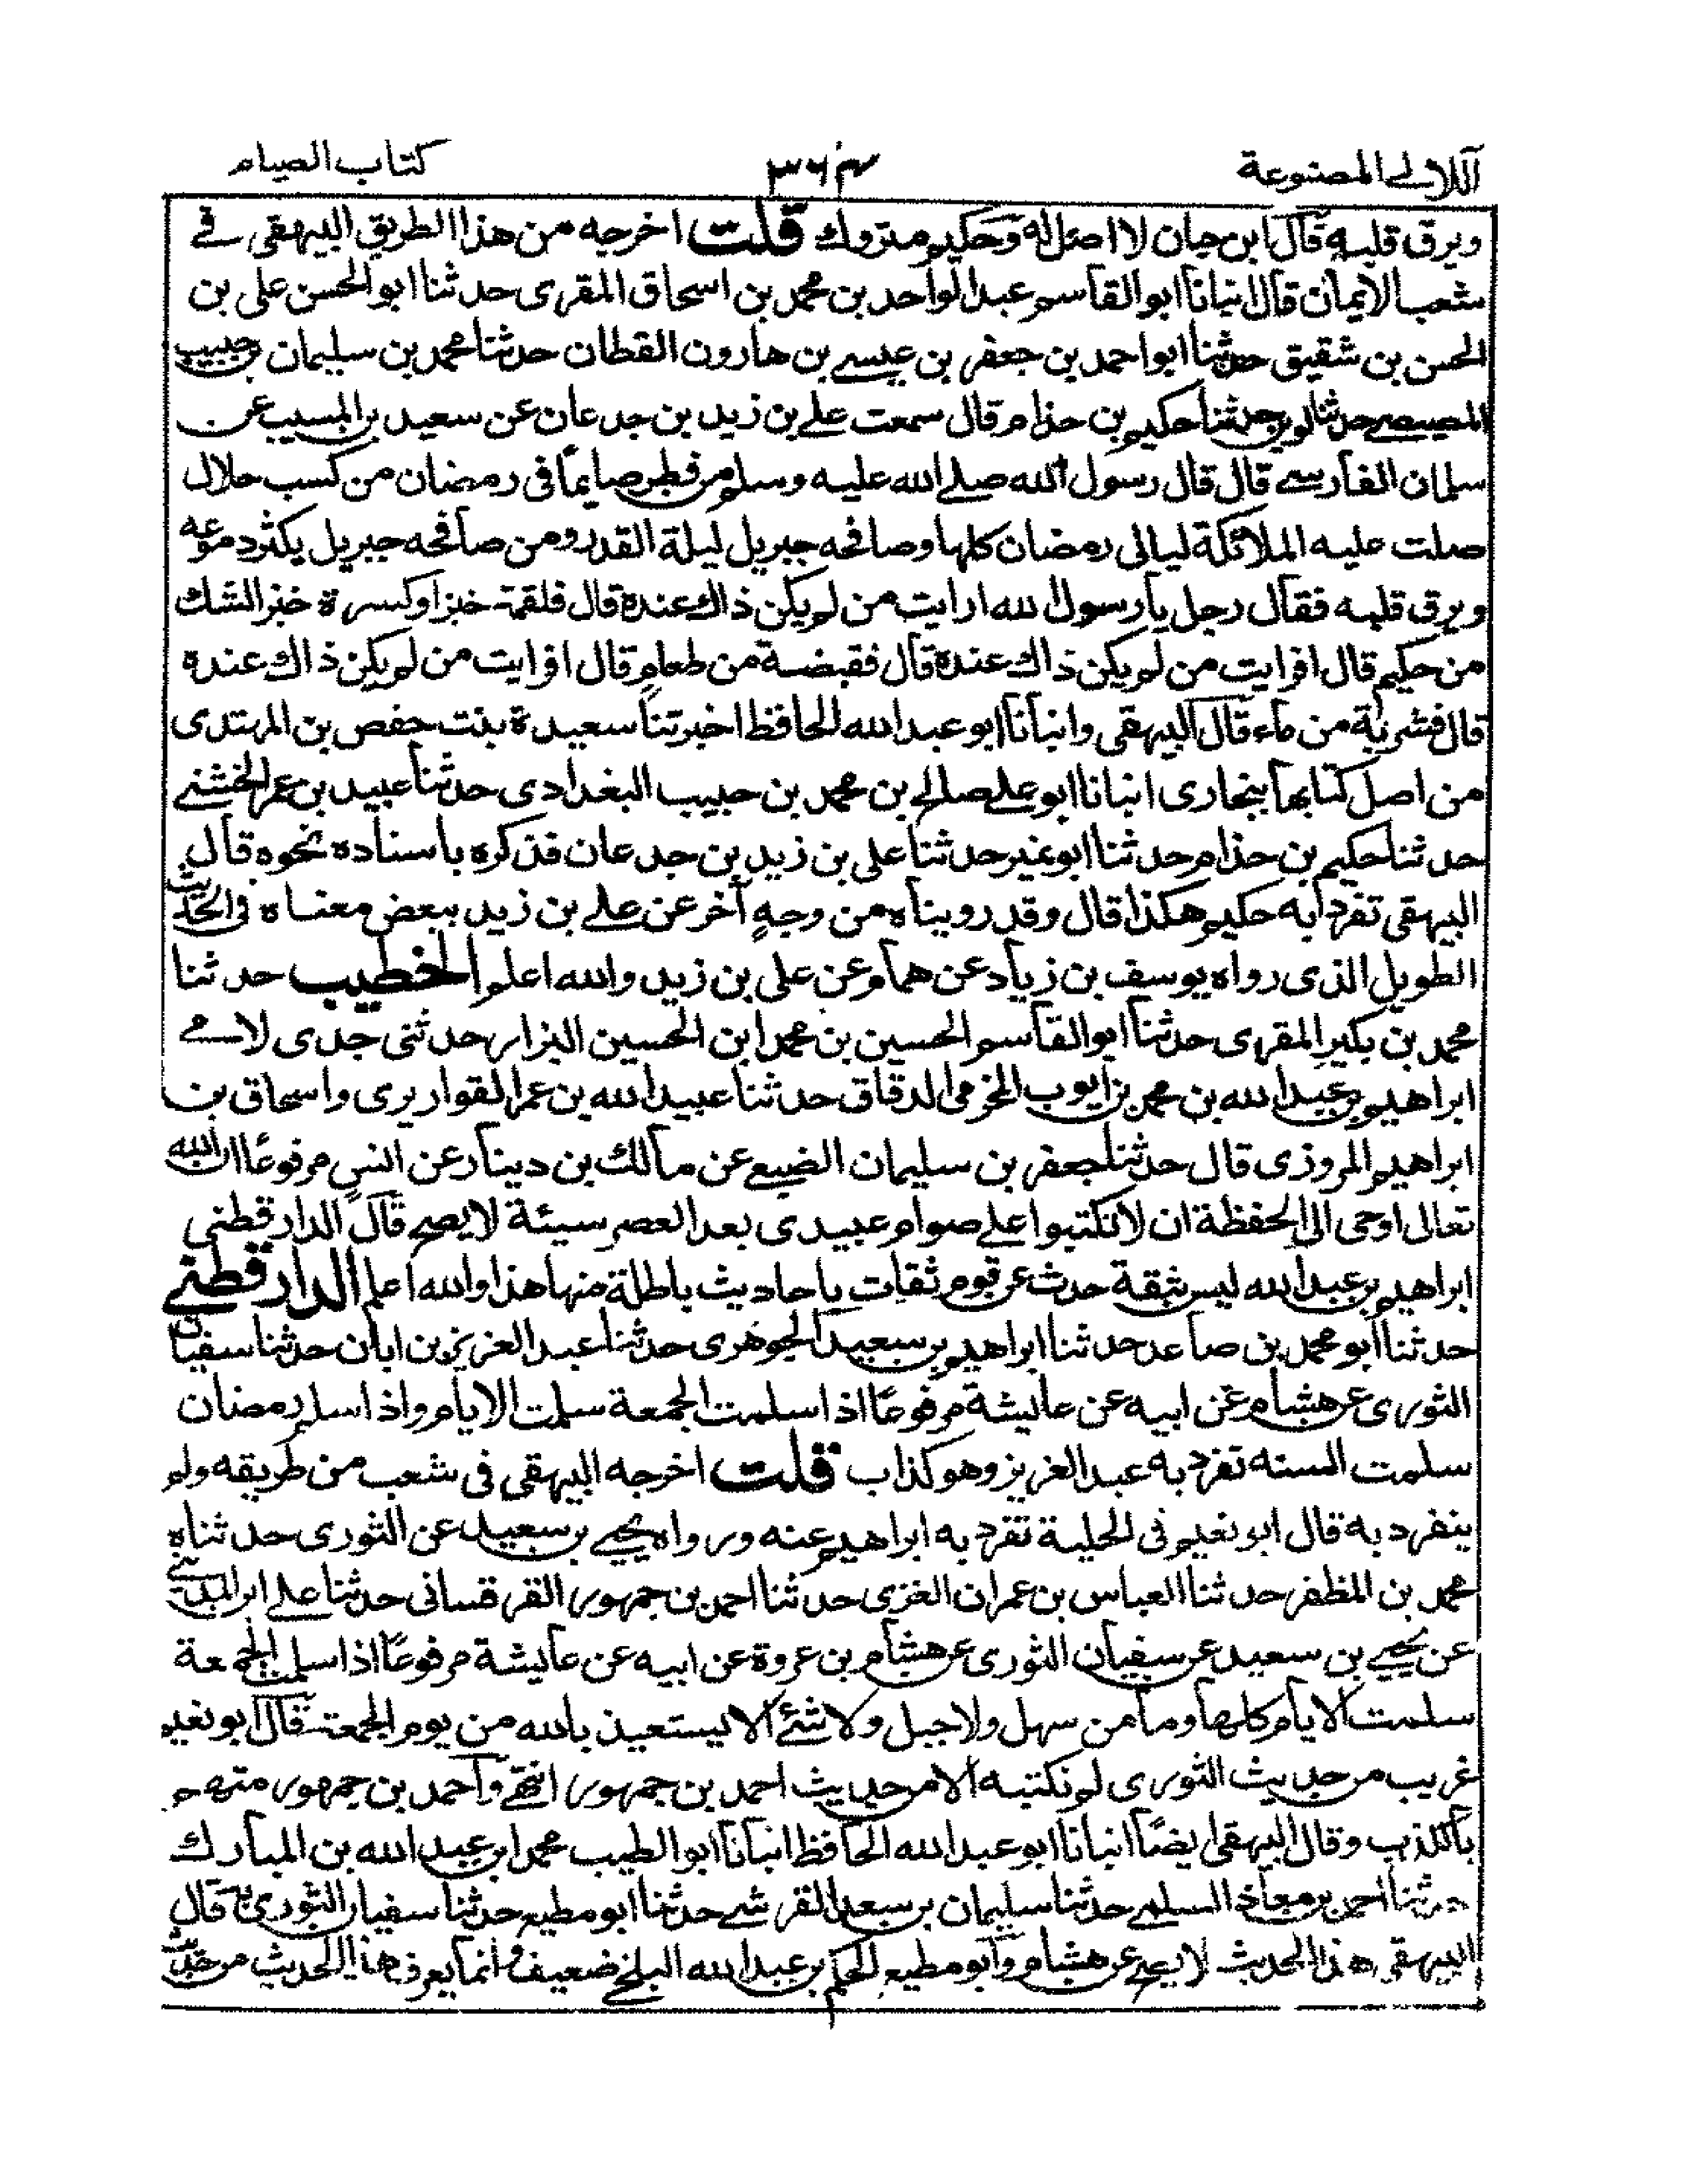 اللآلى المصنوعة
٣٦٤
كتاب الصيام
ويرق قلبه قال ابن حبان لا اصل له وحكيم متروك قلت اخرجه من هذا الطريق البيهقى فى
شعب الايمان قال انبانا ابو القاسم عبد الواحد بن محمد بن اسحاق المقرى حدثنا ابو الحسن على بن
الحسن بن شقيق حدثنا ابو احمد بن جعفر بن عيسى بن هارون القطان حدثنا محمد بن سليمان بن حبيب
المصيصى حدثنا لوين حدثنا حكيم بن حذام قال سمعت على بن زيد بن جدعان عن سعيد بن المسيب عن
سلمان الفارسى قال قال رسول الله صلى الله عليه وسلم من فطر صايمًا فى رمضان من كسب حلال
صلت عليه الملائكة ليالى رمضان كلها وصافحه جبريل ليلة القدر ومن صافحه جبريل يكثر دموعه
ويرق قلبه فقال رجل يا رسول الله ارايت من لم يكن ذاك عنده قال فلقمة خبز او كسرة خبز الشك
من حكيم قال افرايت من لم يكن ذاك عنده قال فقبضة من طعام قال افرايت من لم يكن ذاك عنده
قال فشربة من ماء قال البيهقى وانبأنا ابو عبد الله الحافظ اخبرتنا سعيدة بنت حفص بن المهتدى
من اصل كتابها ببخارى انبانا ابو على صالح بن محمد بن حبيب البغدادى حدثنا عبيد بن عمر الخشنى
حدثنا حكيم بن حذام حدثنا ابو عمير حدثنا على بن زيد بن جدعان فذكره باسناده نحوه قال
البيهقى تفرد به حكيم هكذا قال وقد رويناه من وجهٍ آخر عن على بن زيد ببعض معناه فى الحديث
الطويل الذى رواه يوسف بن زياد عن همام عن على بن زيد والله اعلم الخطيب حدثنا
محمد بن بكير المقرى حدثنا ابو القاسم الحسين بن محمد ابن الحسين البزار حدثنى جدى لامى
ابراهيم بن عبد الله بن محمد بن ايوب المخرمى الدقاق حدثنا عبيد الله بن عمر القواريرى واسحاق بن
ابراهيم المروزى قال حدثنا جعفر بن سليمان الضبعى عن مالك بن دينار عن انس مرفوعًا ان الله
تعالى اوحى الى الحفظة ان لا تكتبوا على صوام عبيدى بعد العصر سيئة لا يصح قال الدارقطنى
ابراهيم بن عبد الله ليس بثقة حدث عن قوم ثقات باحاديث باطلة منها هذا والله اعلم الدارقطنى
حدثنا ابو محمد بن صاعد حدثنا ابراهيم بن سعيد الجوهرى حدثنا عبد العزيز بن ابان حدثنا سفيان
الثورى عن هشام عن ابيه عن عايشة مرفوعًا اذا سلمت الجمعة سلمت الايام واذا سلم رمضان
سلمت السنه تفرد به عبد العزيز وهو كذاب قلت اخرجه البيهقى فى شعب من طريقه ولم
ينفرد به قال ابو نعيم فى الحلية تفرد به ابراهيم عنه ورواه يحيى بن سعيد عن الثورى حدثناه
محمد بن المظفر حدثنا العباس بن عمران الغزى حدثنا احمد بن جمهور القرقسانى حدثنا على ابن المدينى
عن يحيى بن سعيد عن سفيان الثورى عن هشام بن عروة عن ابيه عن عايشة مرفوعًا اذا سلمت الجمعة
سلمت الايام كلها وما من سهل ولا جبل ولا شئ الا يستعيذ بالله من يوم الجمعة قال ابو نعيم
غريب من حديث الثورى لم نكتبه الا من حديث احمد بن جمهور انتهى واحمد بن جمهور متهم
بالكذب وقال البيهقى ايضًا انبانا ابو عبد الله الحافظ انبانا ابو الطيب محمد ابن عبد الله بن المبارك
حدثنا احمد بن معاذ السلمى حدثنا سليمان بن سعد القرشى حدثنا ابو مطيع حدثنا سفيان الثورى به قال
البيهقى هذا الحديث لا يصح عن هشام وابو مطيع الحكم بن عبد الله البلخى ضعيف وانما يعرف هذا الحديث من حديث